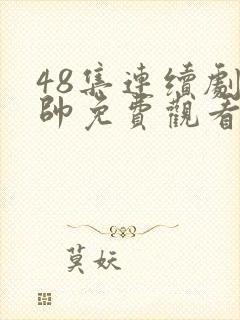 48集連續劇
帥免費觀看
莫妖